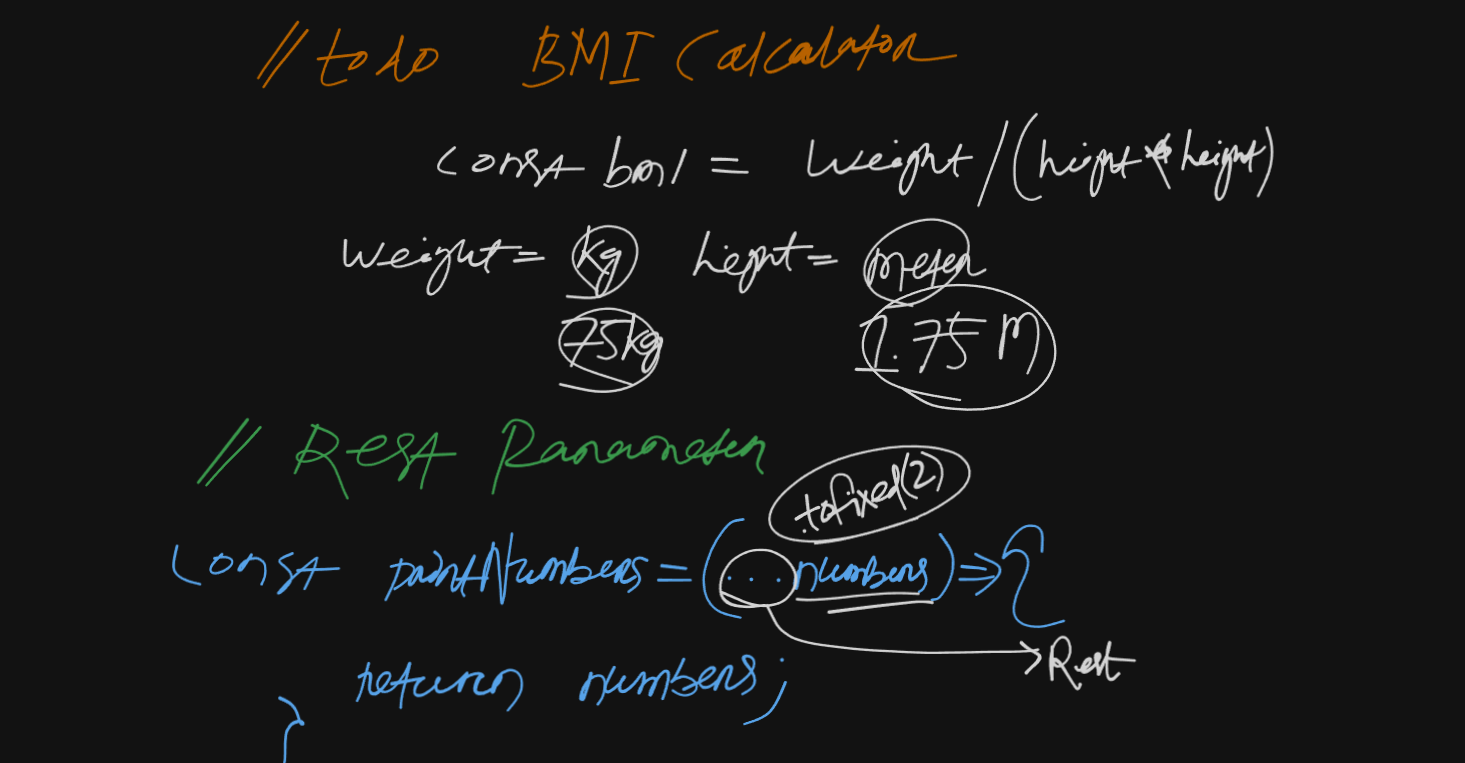 // todo BMI Calculator
const bmi = weight / (hight * height)
weight = kg hight = meter
75kg 1.75 M
// Rest Parameter
.tofixed(2)
const printNumbers = (...numbers) => {
Rest
return numbers;
}